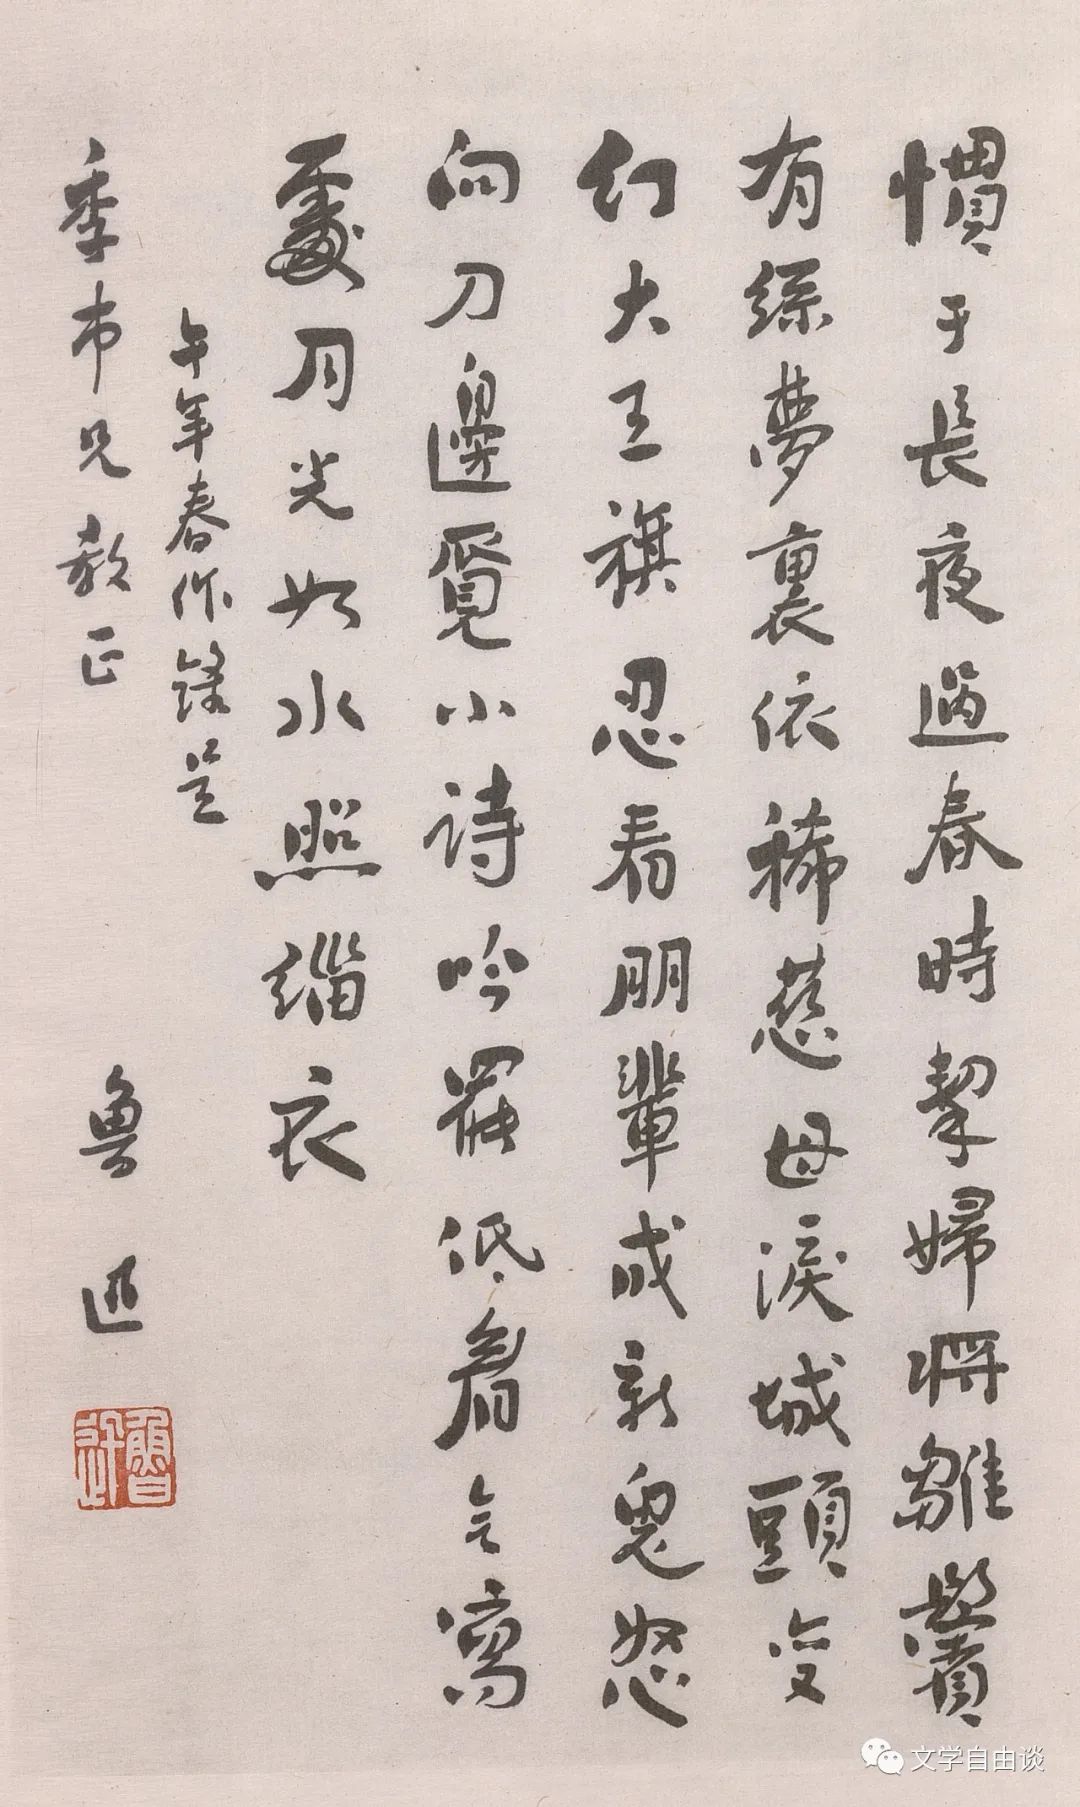 慣于長夜過春時挈婦將雛鬢
有絲夢裏依稀慈母淚城頭變
幻大王旗忍看朋輩成新鬼怒
向刀邊覓小詩吟罷低眉无寫
處月光如水照緇衣
午年春作錄呈
季市兄教正 魯迅
魯迅
文学自由谈